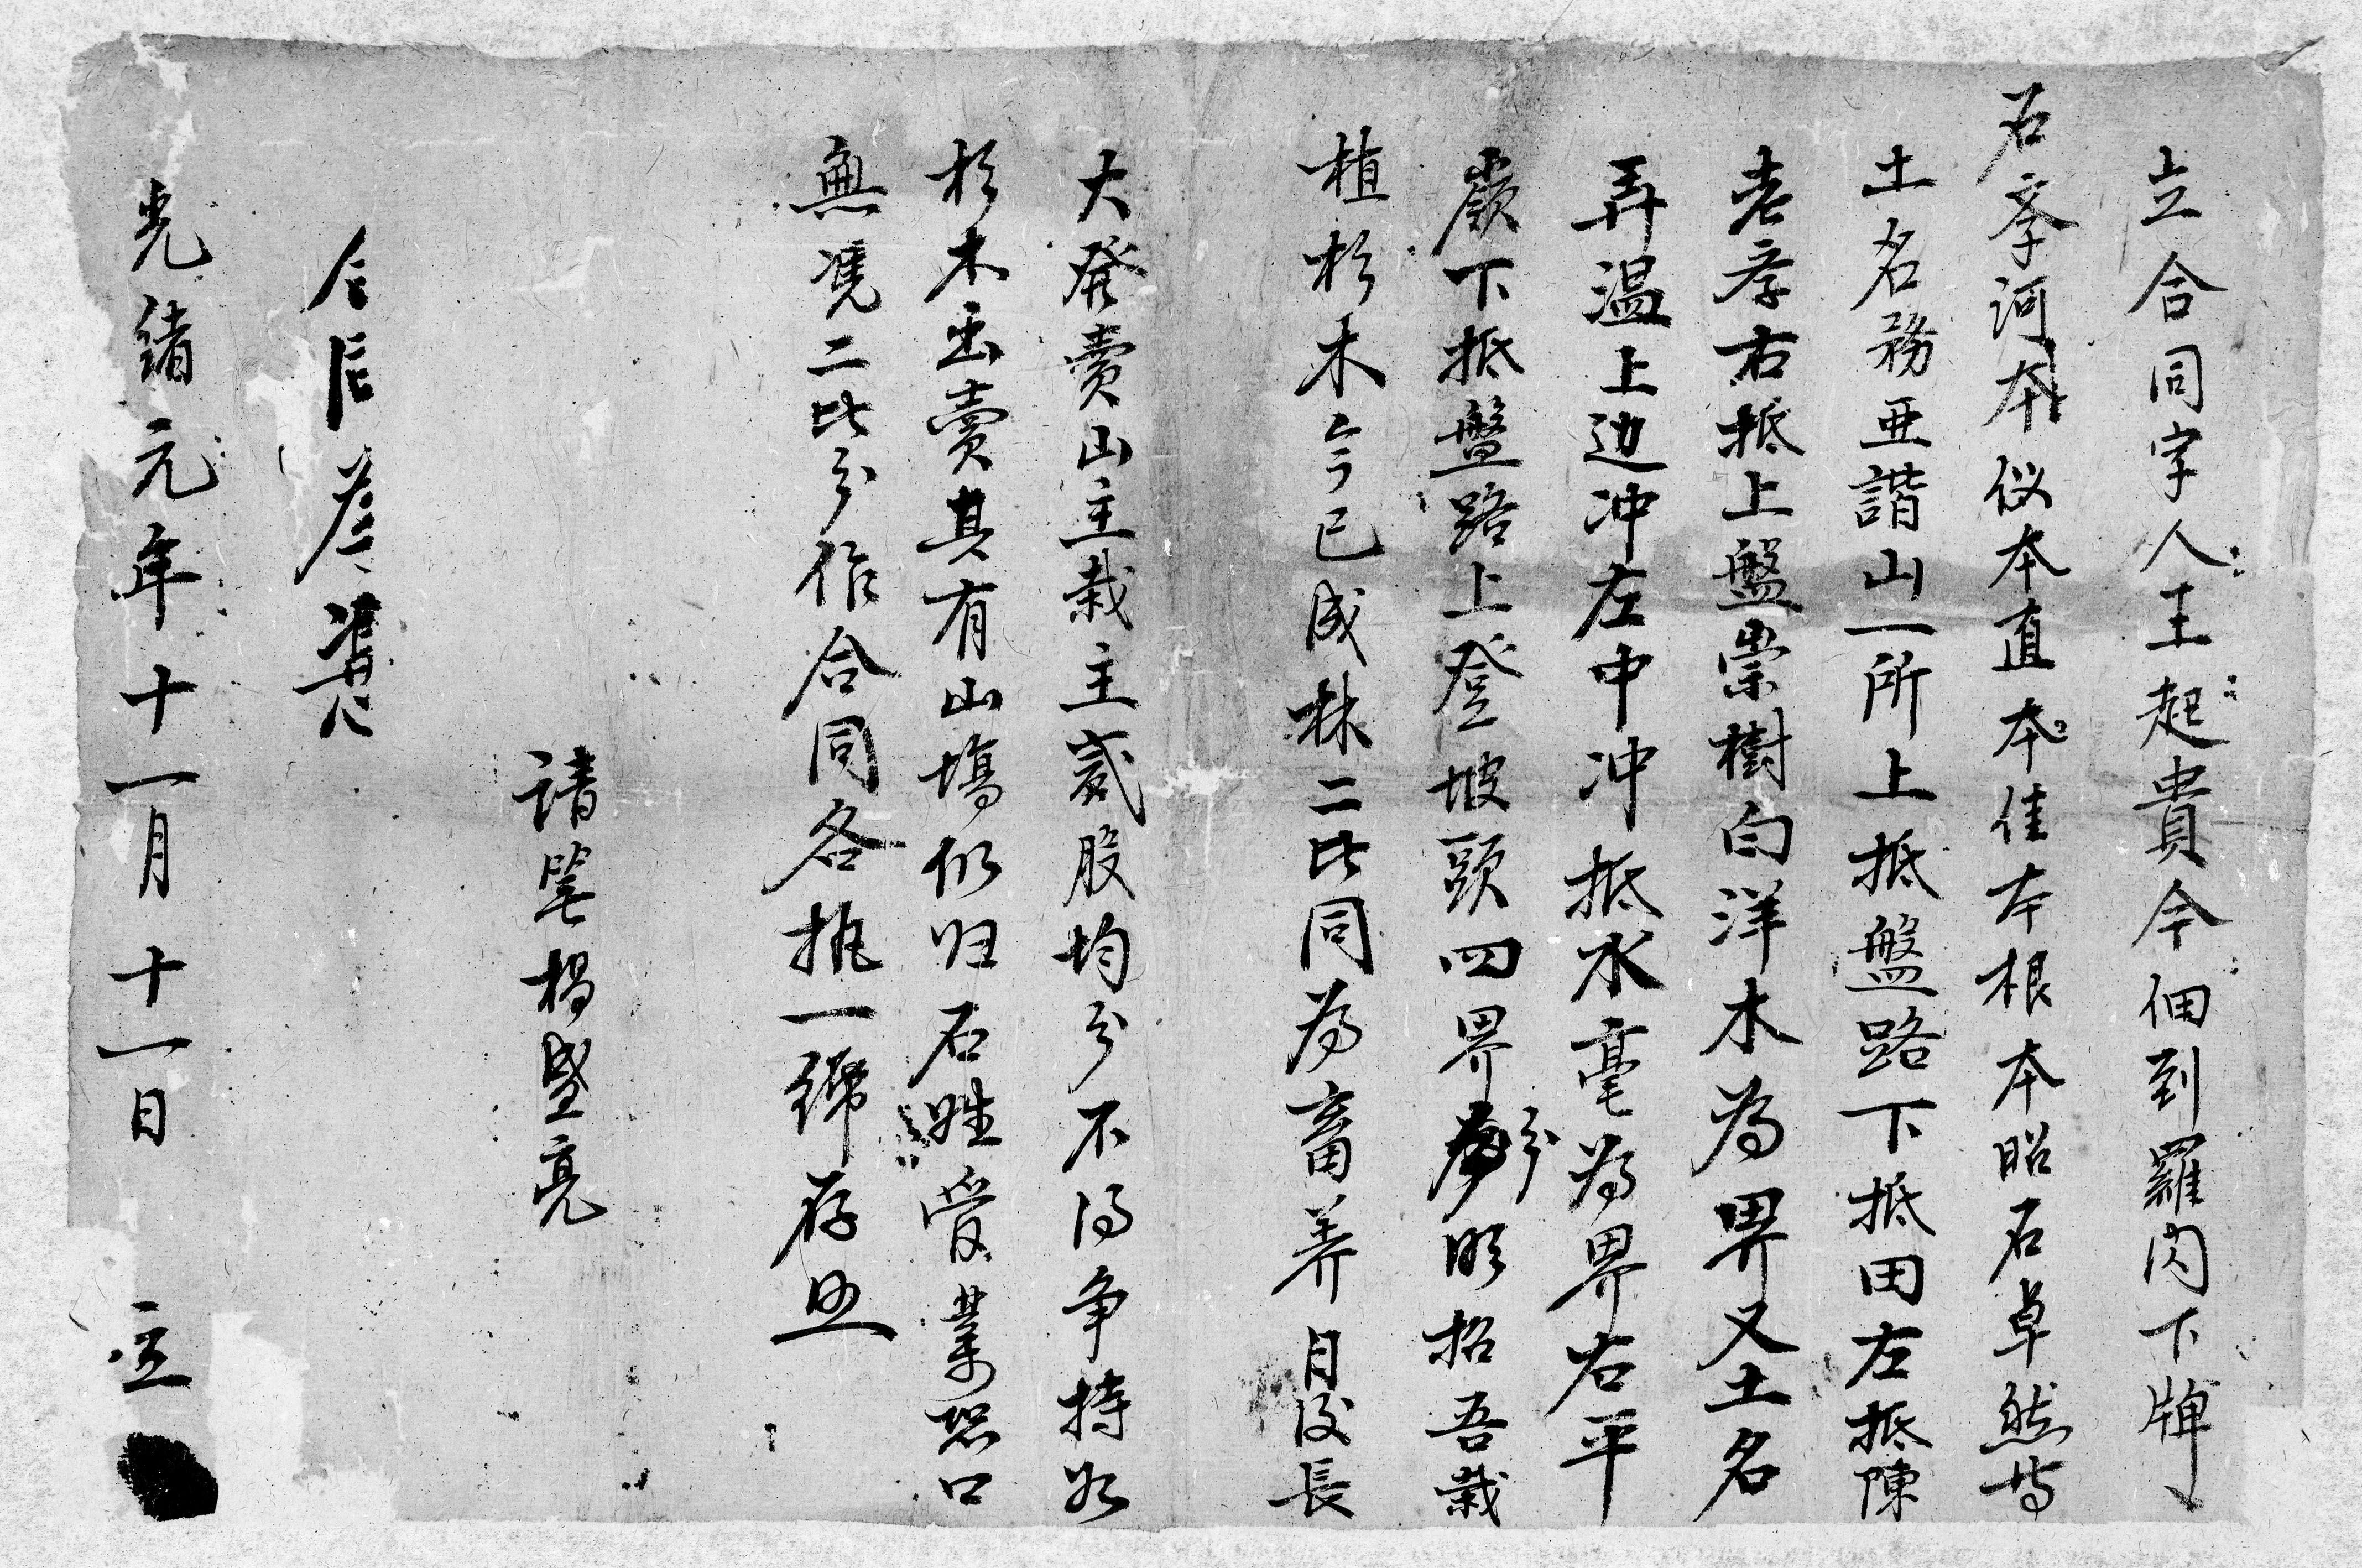 立合同字人王起貴今佃到羅内下牌
石孝河本似本直本本佳本根本昭石卓然等
土名務亜諧山一所上抵盤路下抵田左抵陳
老孝右抵上盤崇樹白洋木為界又土名
弄温上边冲左中冲抵水毫為界右平
嶺下抵盤路上登坡頭四界分明招吾栽
植杉木今已成林二比同為畜养日後長
大發賣山主栽主貳股均分不得争持如
杉木出賣其有山塲仍归石姓管業恐口
無凴二比分作合同各执一紙存照
請筆楊盛亮
光绪元年十一月十一日 立